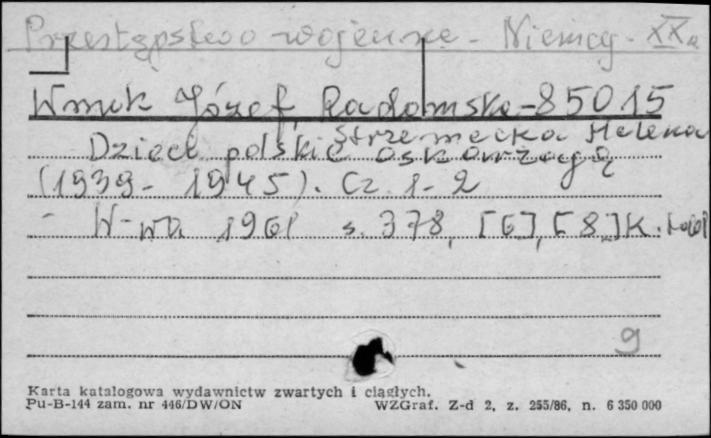 Przestępstwo wojenne - Niemcy - XX w
Wnuk Józef, Radomska - 85015
Strzemecka Helena
Dzieci polskie oskarżają
(1939 - 1945). Cz. 1-2
W-wa 1961 s. 378, [6], [8] K.
9
Karta katalogowa wydawnictw zwartych i ciągłych.
Pu-B-144 zam. nr 446/DW/ON WZGraf. Z-d 2, z. 255/86, n. 6 350 000